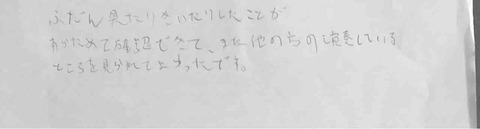 ふだん見たりきいたりしたことが
あらためて確認できて、また他の方の演奏している
ところを見られてよかったです。